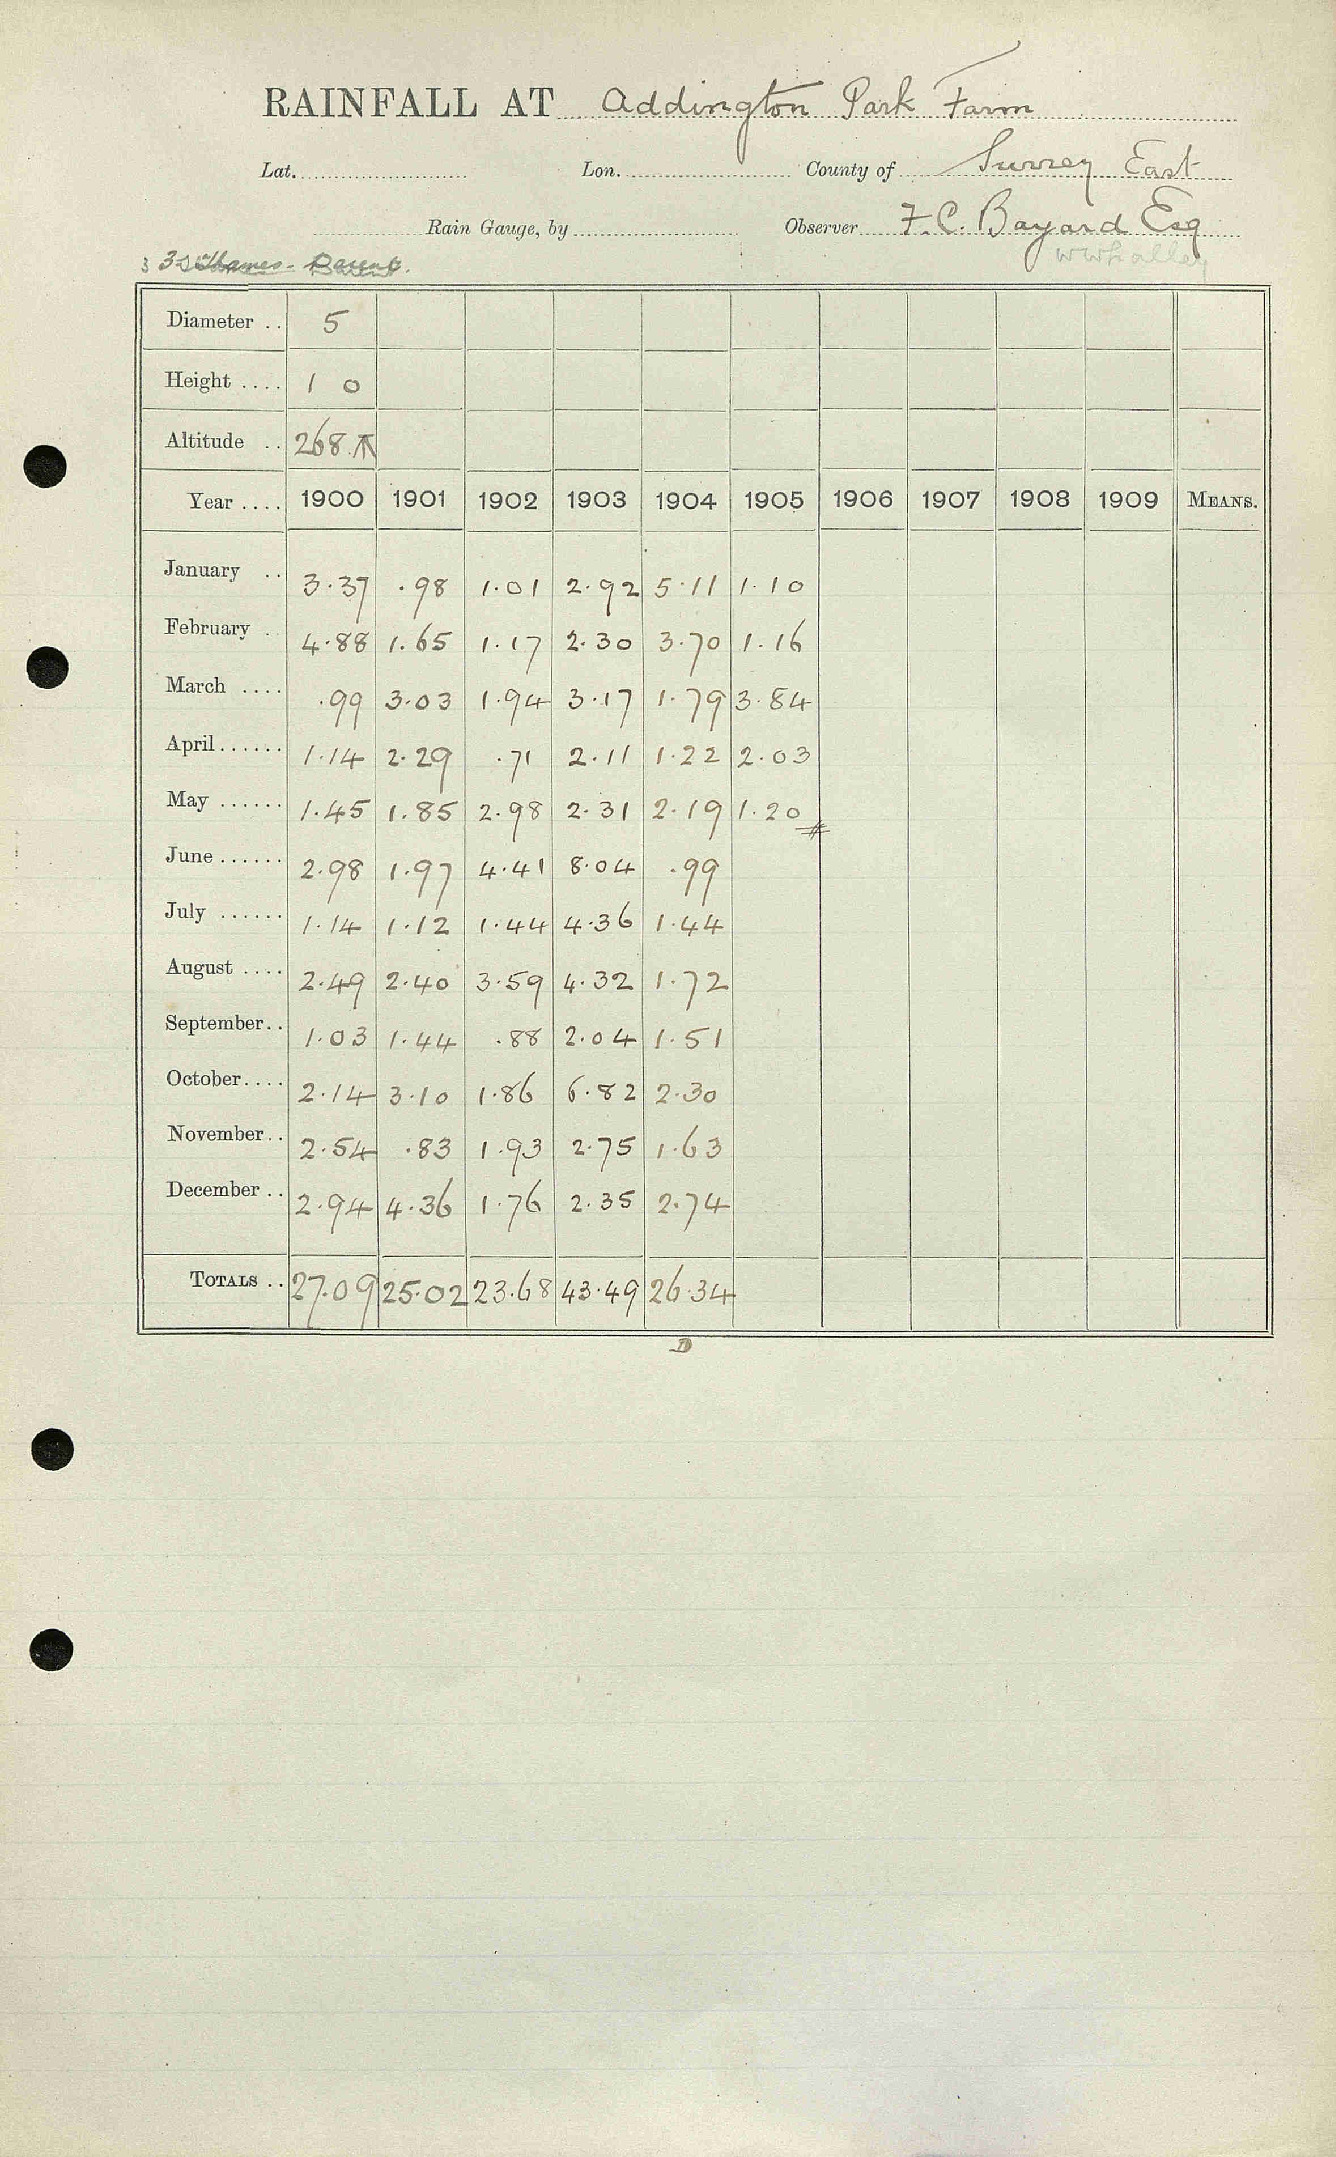 RAINFALL AT Addington Park Farm
Lat. Lon. County of Surrey East
Rain Gauge, by Observer F.C. Bayard Esq
W Whalley
Diameter .. 5
Height .... 1 0
Altitude .. 268
Year .... 1900 1901 1902 1903 1904 1905 1906 1907 1908 1909 MEANS.
January .. 3.37 .98 1.01 2.92 5.11 1.10
February . 4.88 1.65 1.17 2.30 3.70 1.16
March .... .99 3.03 1.94 3.17 1.79 3.84
April...... 1.14 2.29 .71 2.11 1.22 2.03
May ...... 1.45 1.85 2.98 2.31 2.19 1.20
June ...... 2.98 1.97 4.41 8.04 .99
July ...... 1.14 1.12 1.44 4.36 1.44
August .... 2.49 2.40 3.59 4.32 1.72
September.. 1.03 1.44 .88 2.04 1.51
October.... 2.14 3.10 1.86 6.82 2.30
November.. 2.54 .83 1.93 2.75 1.63
December .. 2.94 4.36 1.76 2.35 2.74
TOTALS .. 27.09 25.02 23.68 43.49 26.34
D